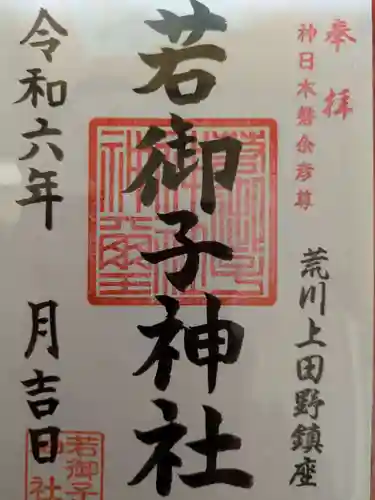 奉拝
神日本磐余彦尊
荒川上田野鎮座
若御子神社
令和六年 月吉日
若御子
神社